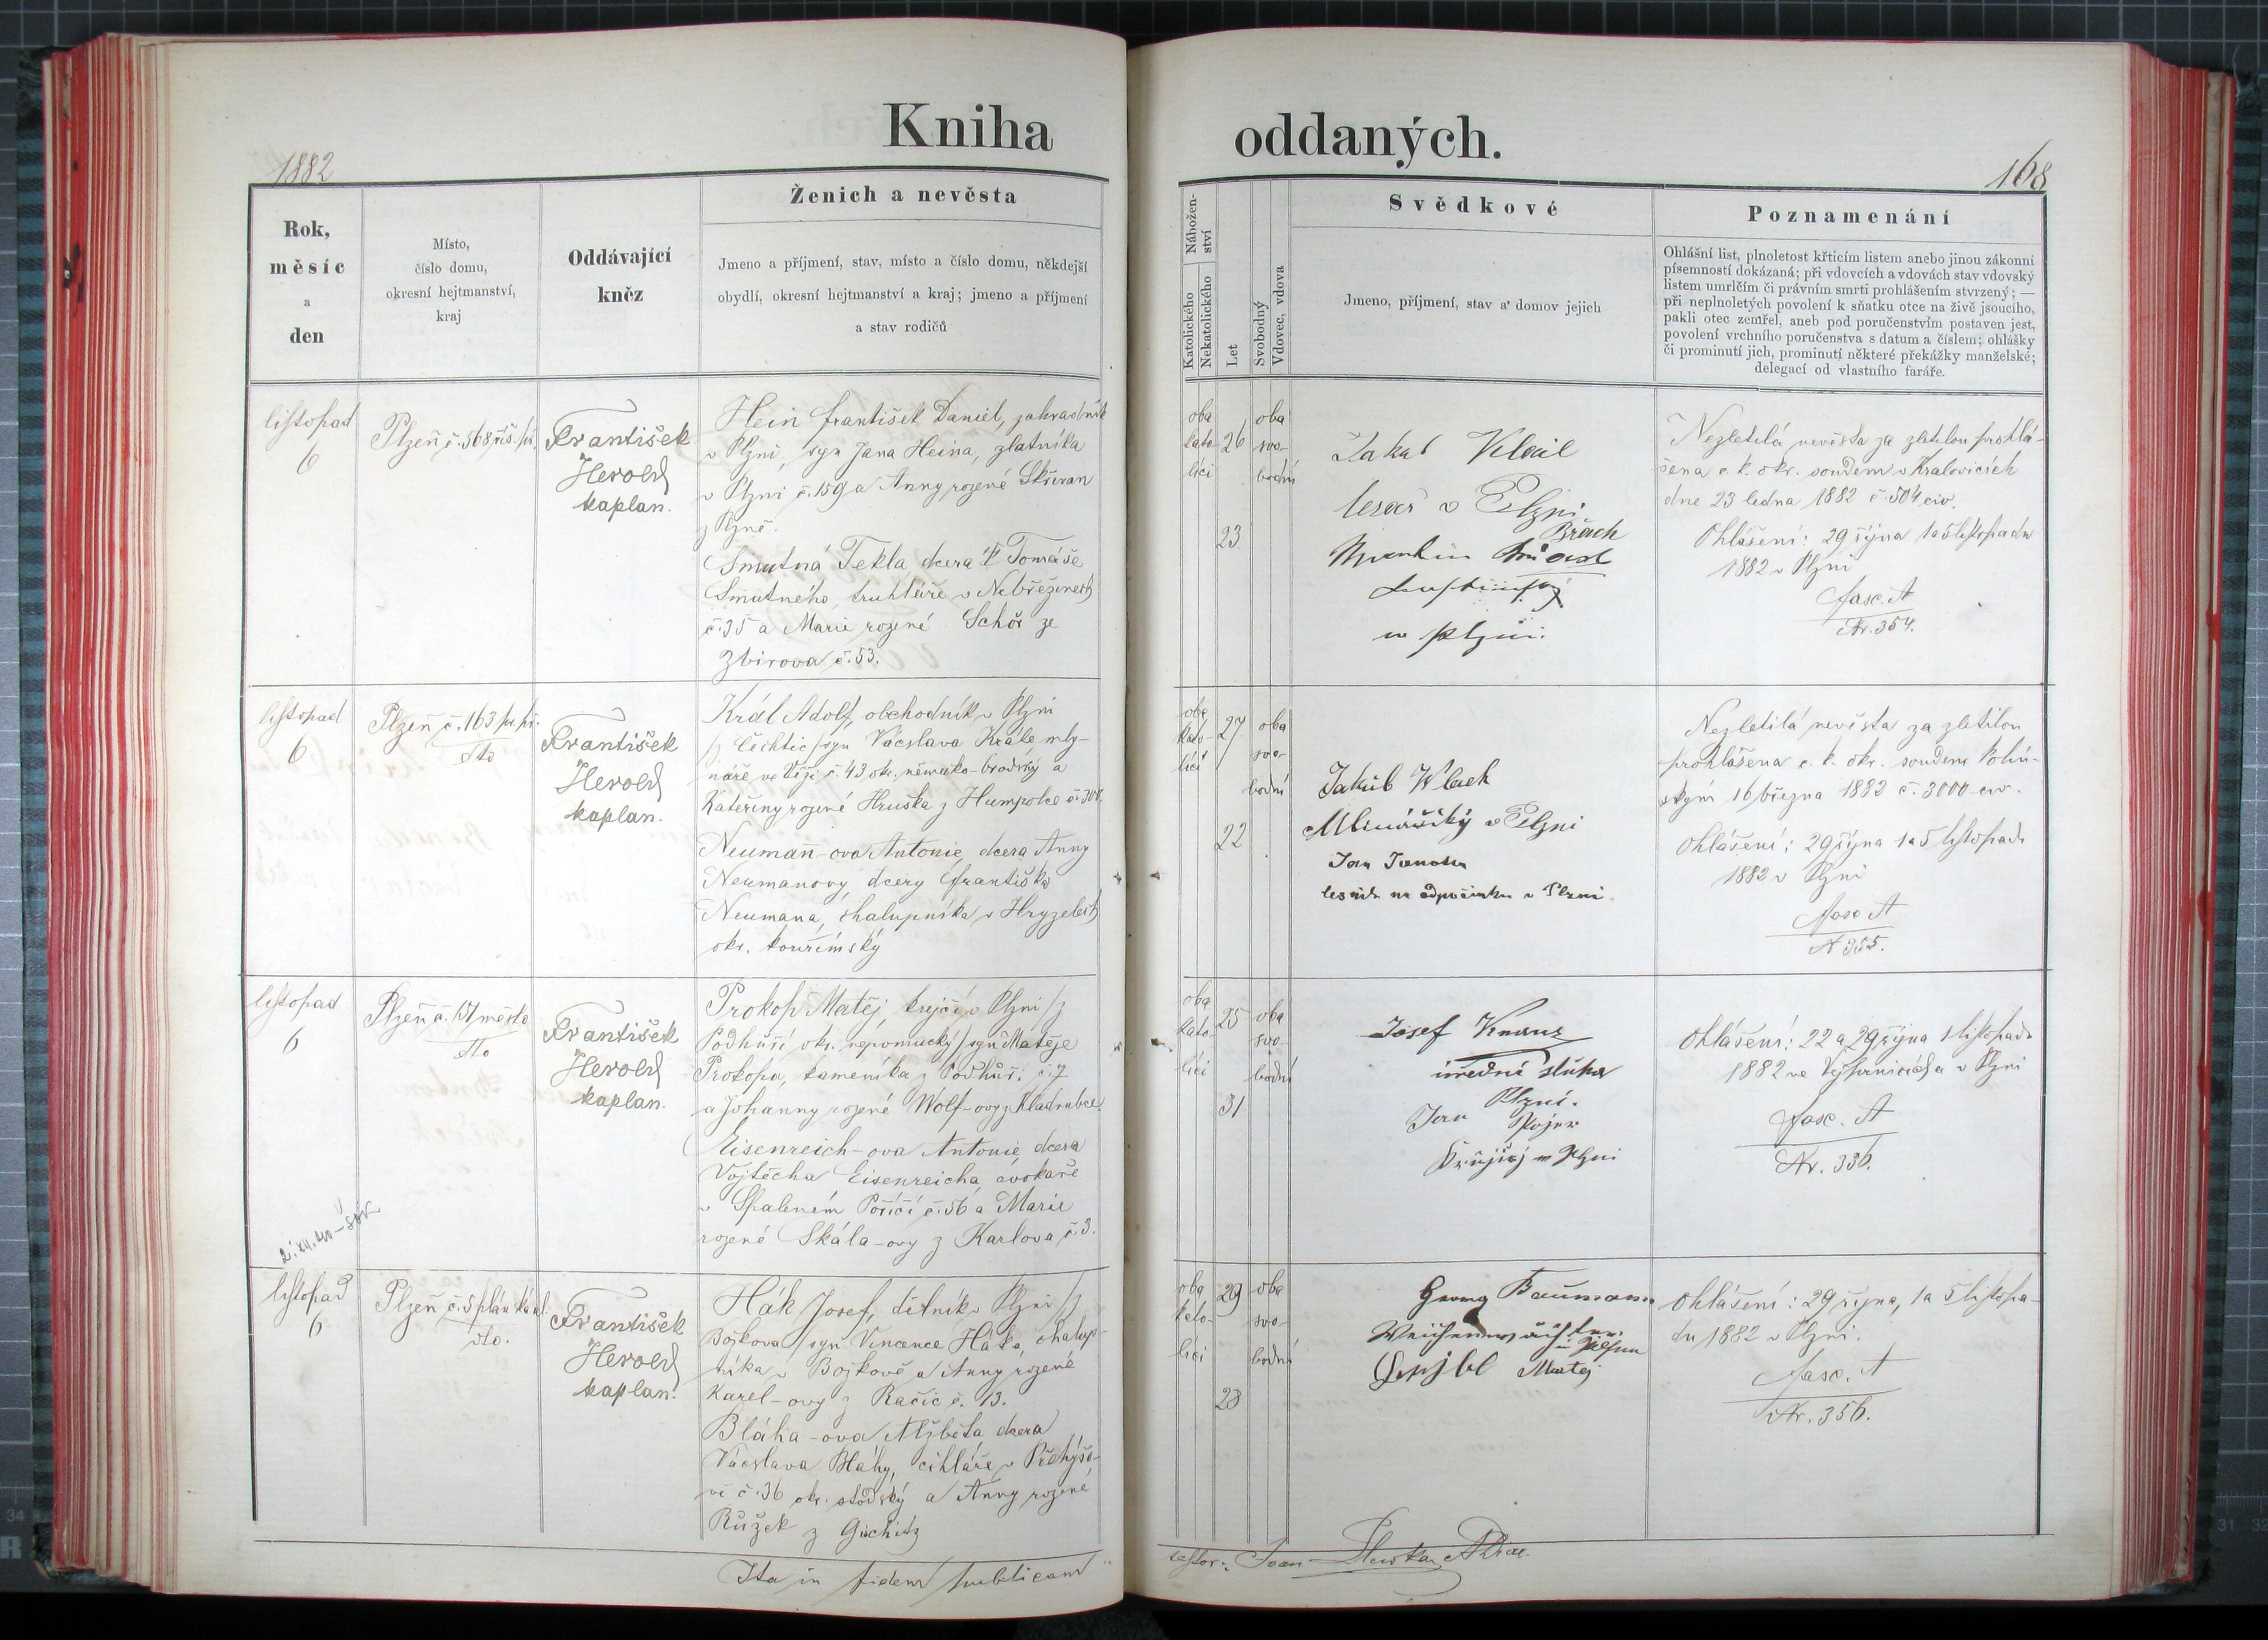 Kniha oddaných.
1882
168
Rok,
měsíc
a
den
Místo,
číslo domu,
okresní hejtmanství,
kraj
Oddávající
kněz
Ženich a nevěsta
Jmeno a příjmení, stav, místo a číslo domu, někdejší
obydlí, okresní hejtmanství a kraj; jmeno a příjmení
a stav rodičů
Nábožen-
ství
Katolického
Nekatolického
Let
Svobodný
Vdovec, vdova
Svědkové
Jmeno, příjmení, stav a domov jejich
Poznamenání
Ohlášní list, plnoletost křticím listem anebo jinou zákonní
písemností dokázaná; při vdovcích a vdovách stav vdovský
listem umrlčím či právním smrti prohlášením stvrzený; —
při neplnoletých povolení k sňatku otce na živě jsoucího,
pakli otec zemřel, aneb pod poručenstvím postaven jest,
povolení vrchního poručenstva s datum a číslem; ohlášky
či prominutí jich, prominutí některé překážky manželské;
delegací od vlastního faráře.
listopad
6
Plzeň č. 568 říš. př.
František
Herold
kaplan.
Hein František Daniel, zahradník
v Plzni, syn Jana Heina, zlatníka
v Plzni č. 159 a Anny rozené Skřivan
z Plzně.
Smutná Tekla dcera Tomáše
Smutného, truhláře v Nebřezinech
č. 35 a Marie rozené Schőr ze
Zbirova č. 53.
oba
kato-
líci
26
23
oba
svo-
bodni
Jakub Klail
lesař v Plzni
w Plzni.
Nezletilá nevěsta za zletilou prohlá-
šena c. k. okr. soudem v Kralovicích
dne 23 ledna 1882 č. 504 civ.
Ohlášení: 29 října 1 a 5 listopadu
1882 v Plzni
fasc. A
Nr. 354.
listopad
6
Plzeň č. 163 pr. př.
dto
František
Herold
kaplan.
Král Adolf, obchodník v Plzni
/z Čechtic/ syn Vácslava Krále mly-
náře ve Věži č. 43 okr. německo-brodský a
Kateřiny rozené Hruška z Humpolce č. 300.
Neuman-ova Antonie, dcera Anny
Neumanovy dcery Františka
Neumana, chalupníka v Hryzelech
okr. kouřimský
oba
kato-
líci
27
22
oba
svo-
bodni
Jakub Wlach
Mlinářský v Plzni
Jan Janota
lesník na odpočinku v Plzni.
Nezletilá nevěsta za zletilou
prohlášena c. k. okr. soudem Kolín-
ským 16 března 1882 č. 3000 civ.
Ohlášení: 29 října 1 a 5 listopadu
1882 v Plzni
fasc A
N 355.
listopad
6
Plzeň č. 157 město
dto
František
Herold
kaplan.
Prokop Matěj, krejčí v Plzni /z
Podhůří okr. nepomucký/ syn Matěje
Prokopa, kameníka z Podhůří č. 7
a Johanny rozené Wolf-ovy z Kladrubce.
Eisenreich-ova Antonie, dcera
Vojtěcha Eisenreicha, cvokaře
v Spáleném Poříčí č. 56 a Marie
rozené Skála-ovy z Karlova č. 3.
oba
kato-
líci
25
31
oba
svo-
bodni
Josef Knauz
úřední sluha
Plzni.
Jan Pojer
Krejčí w Plzni
Ohlášení: 22 a 29 října 1 listopadu
1882 ve a v Plzni
fasc. A
Nr. 336.
listopad
6
Plzeň č. 5
dto.
František
Herold
kaplan.
Hák Josef, dělník v Plzni /z
Bojkova/ syn Vincence Háka, chalup-
níka v Bojkově a Anny rozené
Karel-ovy z Račic č. 13.
Bláha-ova Alžběta dcera
Vácslava Bláhy, cihláře v Přehýšo-
vě č. 36 okr. stodský a Anny rozené
Růžek z Guchitz
oba
kato-
líci
29
23
oba
svo-
bodni
Georg Baumann
in Pilsen
Matěj
Ohlášení: 29 října, 1 a 5 listopa-
du 1882 v Plzni.
fasc. A
Nr. 356.
Ita in fidem publicam